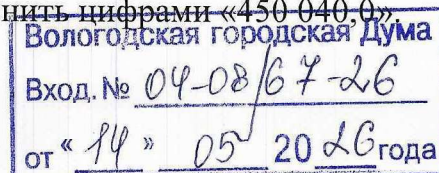 нить цифрами «450 040,0».
Вологодская городская Дума
Вход. № 04-08/67-26
от "14" 05 2026 года